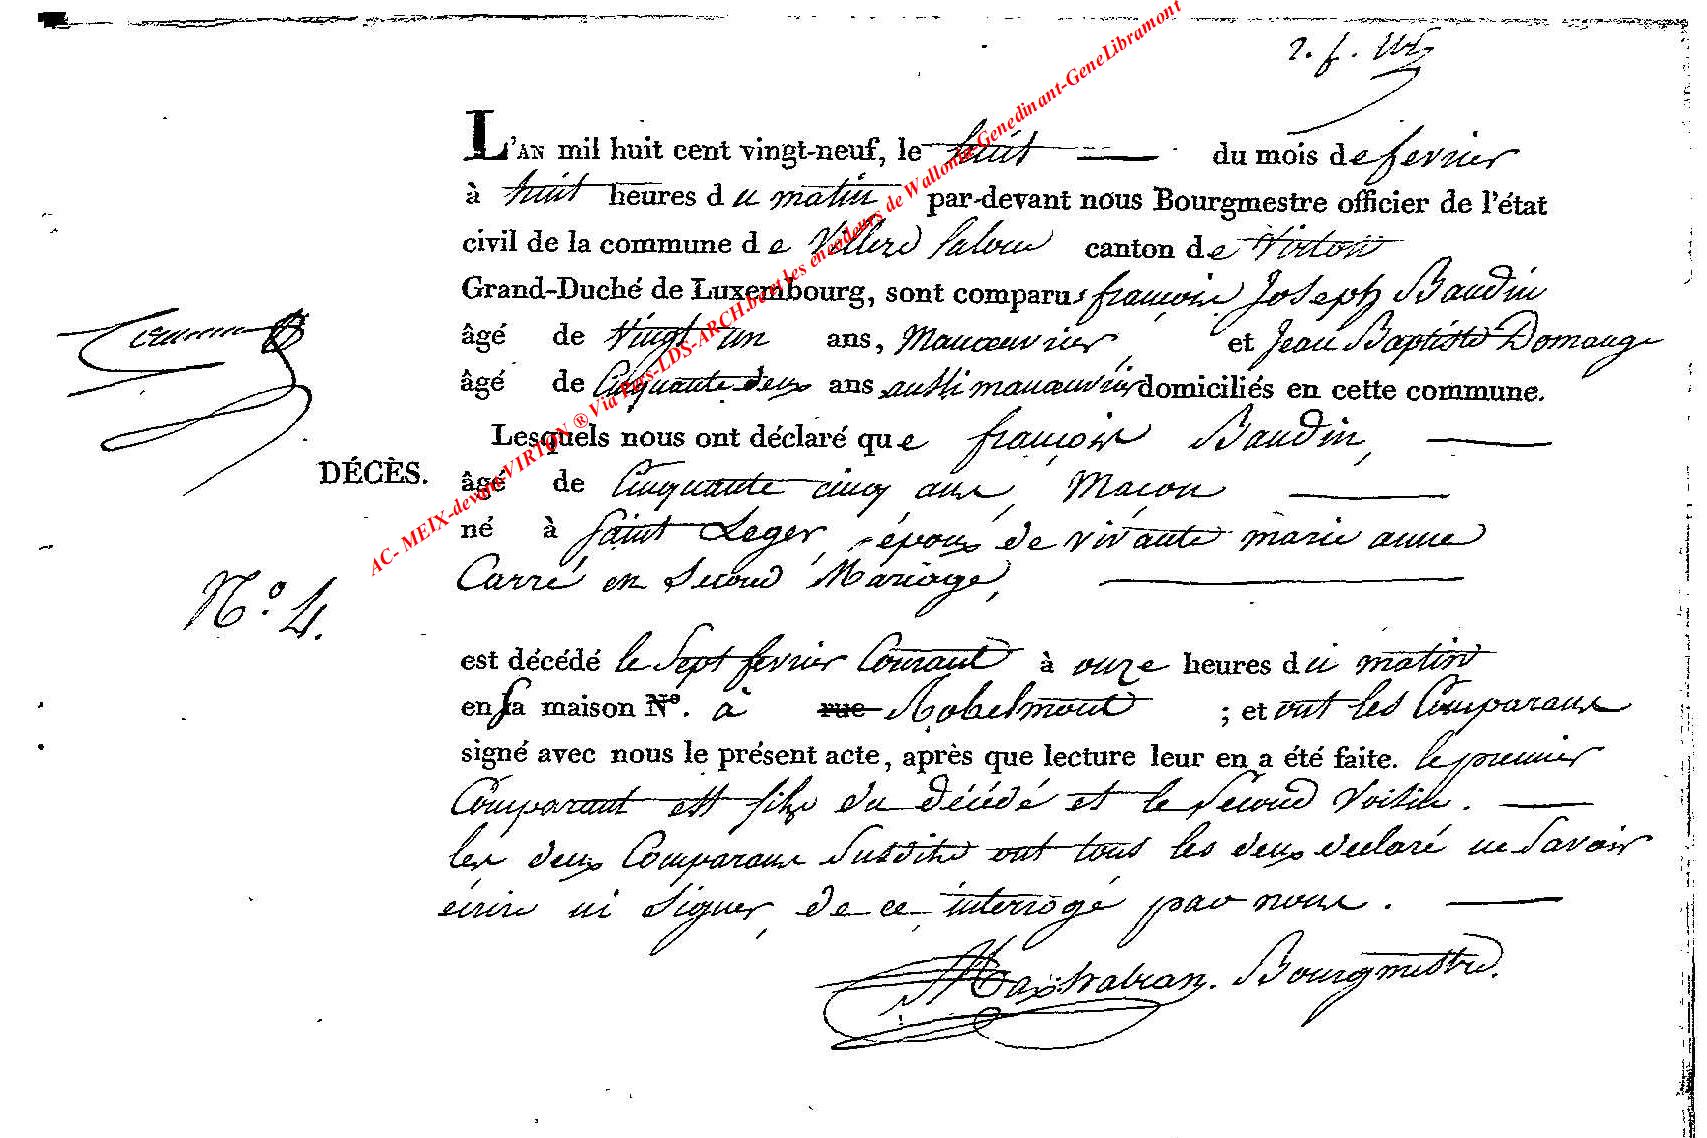 2. f.
L'AN mil huit cent vingt-neuf, le huit du mois de fevrier
à huit heures du matin par-devant nous Bourgmestre officier de l'état
civil de la commune de Villers laloue canton de Virton
Grand-Duché de Luxembourg, sont comparus françois Joseph Baudin
âgé de Vingt un ans, Manœuvrier, et Jean Baptiste Domange
âgé de Cinquante deux ans aussi manœuvrier domiciliés en cette commune.
Lesquels nous ont déclaré que françois Baudin,
DÉCÈS.
âgé de Cinquante cinq ans, Maçon
né à Saint Leger, époux de vivante marie anne
Carré en Second Mariage,
N.o 4.
est décédé le Sept fevrier Courant à onze heures du matin
en sa maison No. à rue Robelmont ; et ont les Comparans
signé avec nous le présent acte, après que lecture leur en a été faite. le premier
Comparant est fils du décédé et le Second Voisin.
les deux Comparans Susdits ont tous les deux declaré ne Savoir
écrire ni Signer, de ce interrogé par nous.
Bourgmestre.
AC- MEIX-devant-VIRTON ® Via Pers-LDS-ARCH.be et les encodeurs de Wallonia-Genedinant-GeneLibramont